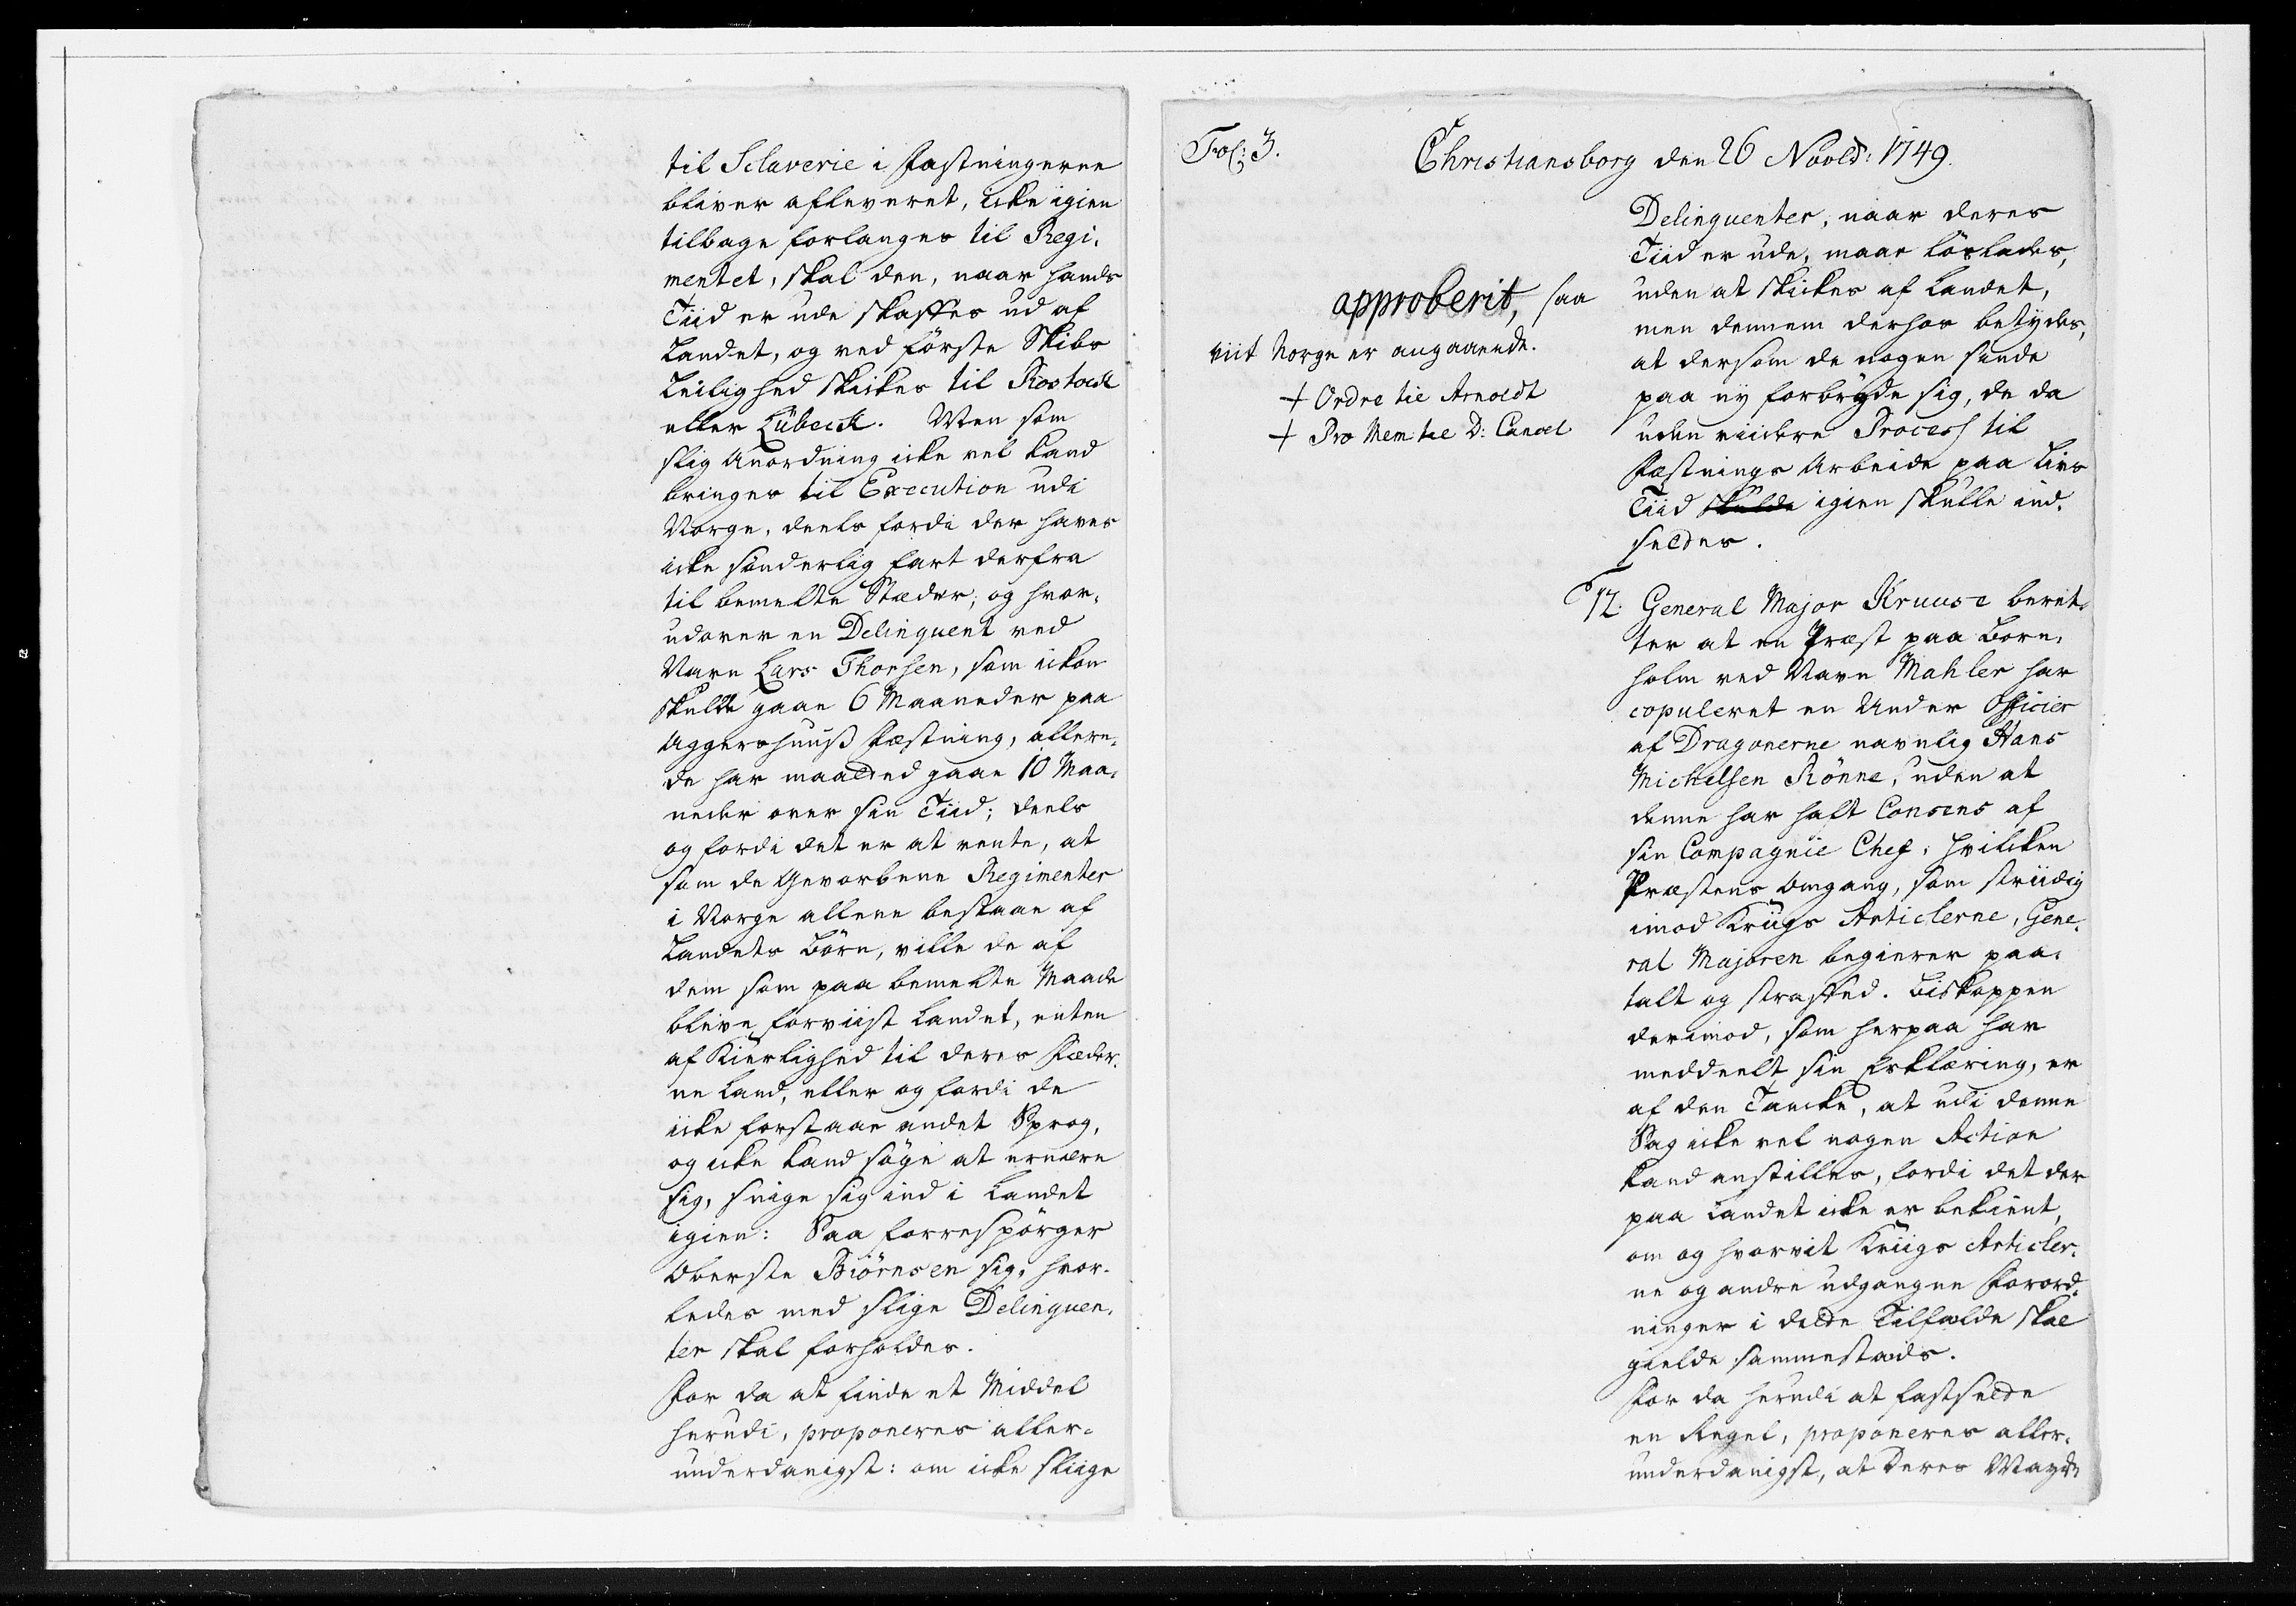 til Sclaverie i Fæstningerne
bliver afleveret, icke igien
tilbage forlanges til Regi-
mentet, skal den, naar hands
Tiid er ude skaffes ud af
Landet, og ved första Skibs
Leilighed skickes til Rostock
eller Lübeck. Men som
slig Anordning icke vel kand
bringes til Execution udi
Norge, deels fordi der haves
icke sönderlig fart derfra
til bemelte Stæder; og hvor-
udover en Delinquent ved
Navn Lars Thorsen, som ickun
skulle gaae 6 Maaneder paa
Aggershuuß Fæstning, allere-
de har maatted gaae 10 Maa-
neder over sin Tiid; deels
og fordi det er at vente, at
som de Gevorbene Regimenter
i Norge allene bestaae af
Landets Börn, ville de af
dem som paa bemelte Maade
blive forviist Landet, enten
af Kierlighed til deres Fæder-
ne Land, eller og fordi de
icke forstaae andet Sprog,
og icke kand söge at ernære
sig, snige sig ind i Landet
igien: Saa forrespörger
Oberste Biörnsen sig, hvor-
ledes med slige Delinquen-
ter skal forholdes.
For da at finde et Middel
herudi, proponeres aller-
underdanigst: om icke sliige
Fol: 3.
Christiansborg den 26 Novbr: 1749.
Delinquenter, naar deres
Tiid er ude, maae löslades,
uden at skickes af Landet,
men dennem derhos betydes,
at dersom de nogen sinde
paa ny forbryde sig, de da
uden viidere Process til
Fæstnings Arbeide paa Livs
Tiid skulde igien skulle ind-
settes.
approberit, saa
viit Norge er angaaende.
+ Ordre til Arnoldt
+ Pro Mem til D: Cancel
12. General Major Kruuse beret-
ter at en Præst paa Born-
holm ved Navn Mahler har
copuleret en Under Officier
af Dragonerne navnlig Hans
Michelsen Rönne, uden at
denne har haft Consens af
sin Compagnie Chef; hvilcken
Præstens Omgang, som striidig
imod Kriigs Articlerne, Gene-
ral Majoren begierer paa-
talt og straffed. Biskoppen
derimod, som herpaa har
meddeelt sin Erklæring, er
af den Tancke, at udi denne
Sag icke vel nogen Action
kand anstilles, fordi det der
paa Landet icke er bekient,
om og hvorvit Kriigs Articler-
ne og andre udgangne Forord-
ninger i dette Tilfælde skal
gielde sammestæds.
For da herudi at fastsette
en Regel, proponeres aller-
underdanigst, at Deres Mayts